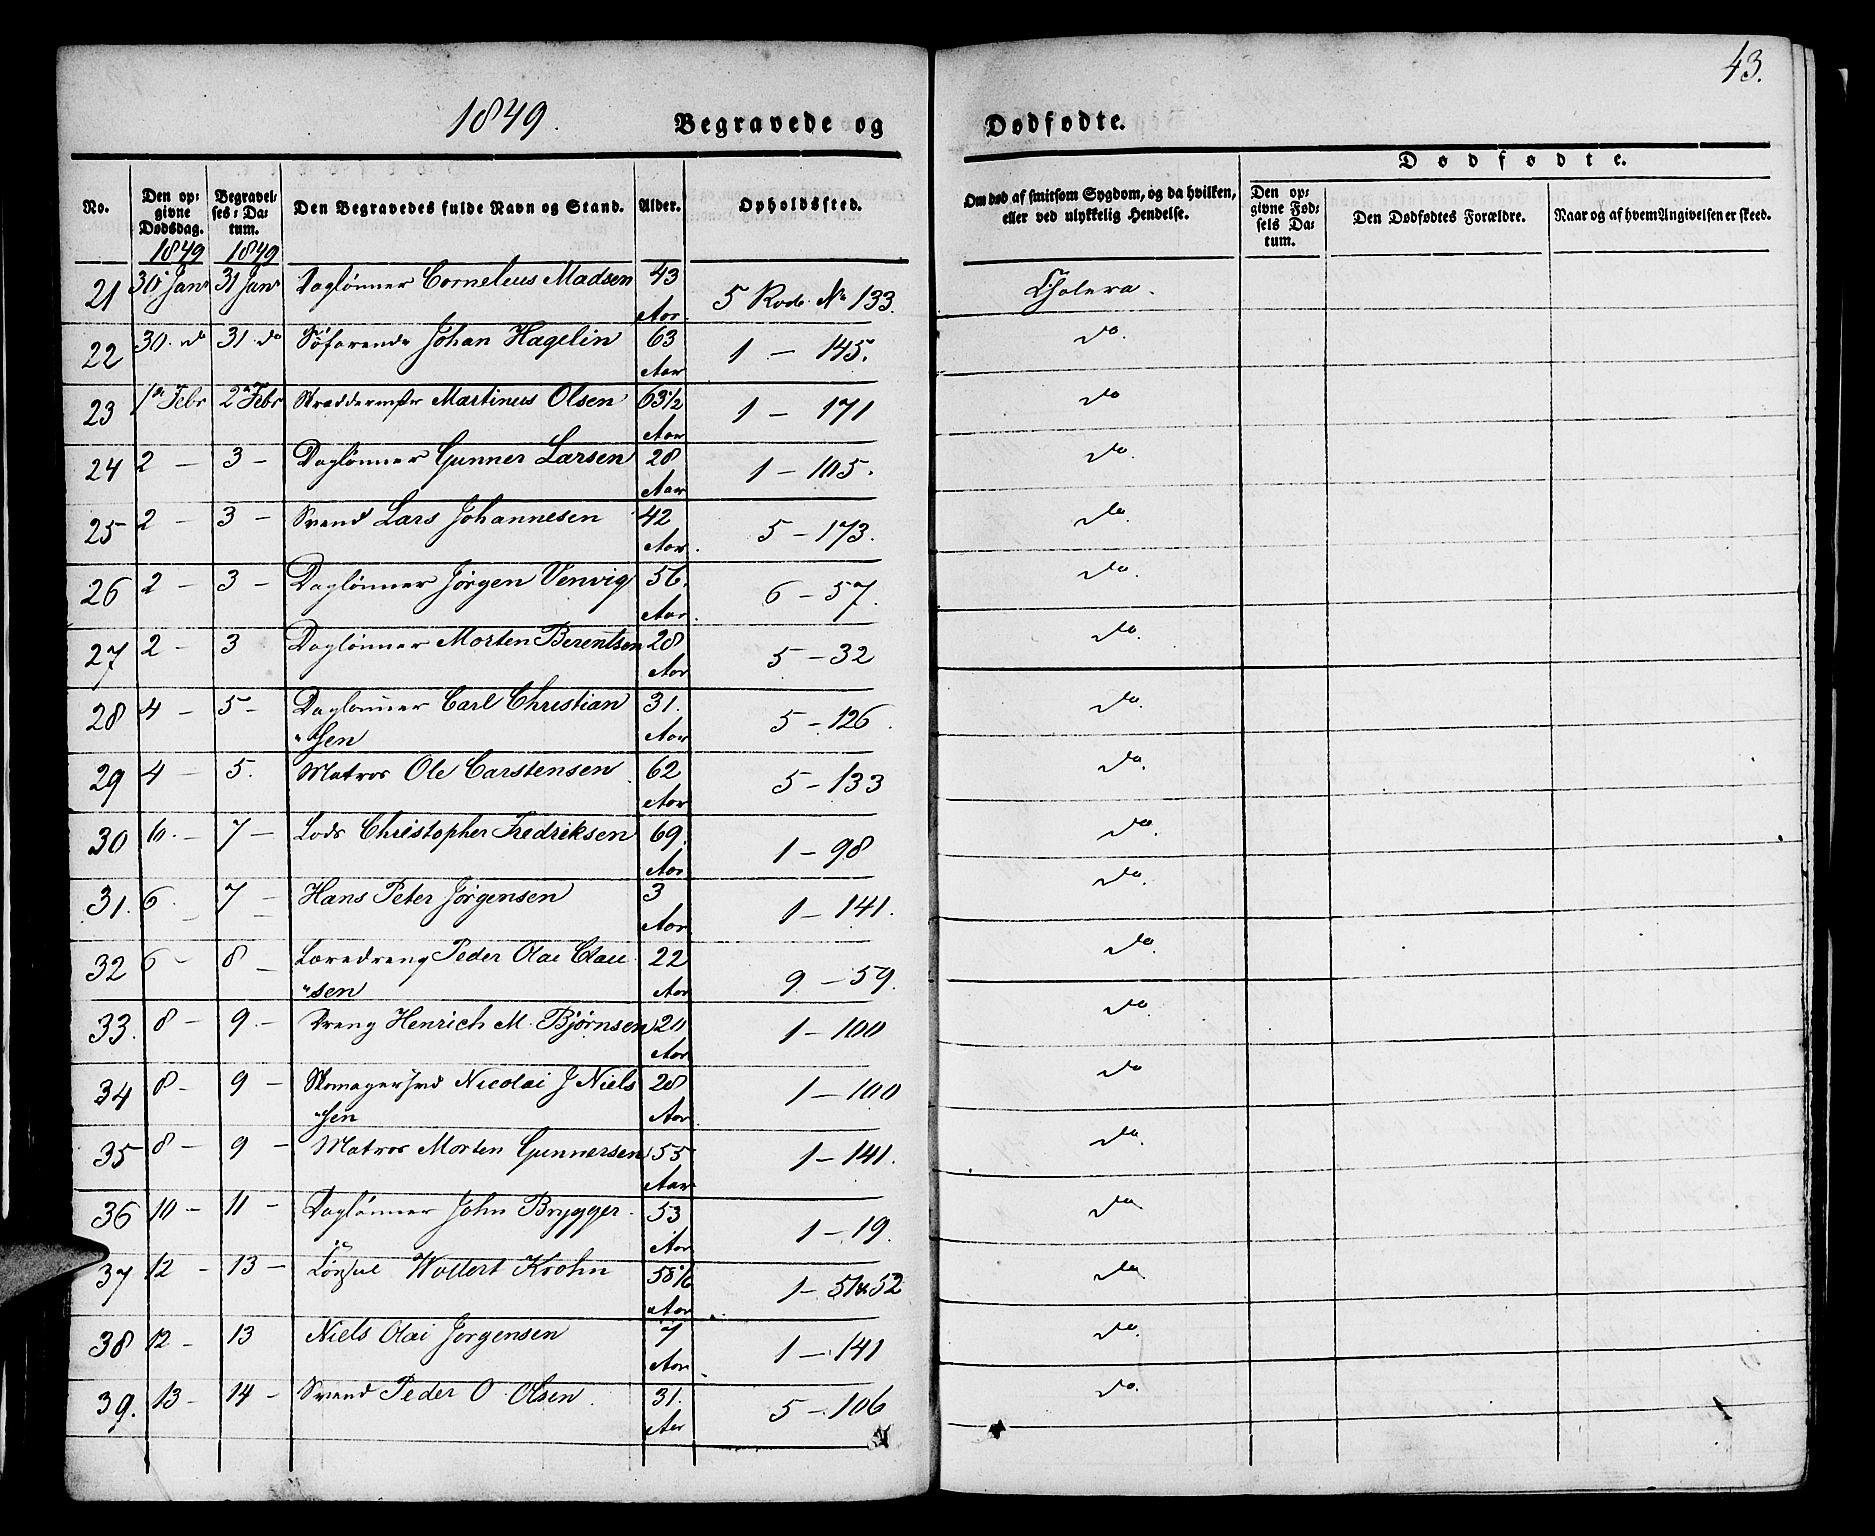 43.
1849. Begravede og Dødfødte.
Dødfødte.
No. Den opgivne Dødsdag. Begravelses-Datum. Den Begravedes fulde Navn og Stand. Alder. Opholdssted. Om død af smitsom Sygdom, og da hvilken, eller ved ulykkelig Hendelse. Den opgivne Fødsels Datum. Den Dødfødtes Forældre. Naar og af hvem Angivelsen er skeed.
1849 1849
21 30 Janr 31 Janr Daglønner Cornelius Madsen 43 Aar. 5 Rode No 133. Cholera.
22 30. do 31. do Søfarende Johan Hagelin 63 Aar 1 – 145. do.
23 1ste Febr 2den Febr Skræddermstr Martinus Olsen 63 1/2 Aar 1 – 171 do
24 2 – 3 – Daglønner Gunner Larsen 28 Aar 1 – 105. do.
25 2 – 3 – Svend Lars Johannesen 42 Aar. 5 – 173. do.
26 2 – 3 – Daglønner Jørgen Venvig 56. Aar. 6 – 57. do.
27 2 – 3 Daglønner Morten Berentsen 28 Aar 5 – 32 do.
28 4 – 5 – Daglønner Carl Christian
"sen 31. Aar 5 – 126. do.
29 4 – 5. Matros Ole Carstensen 62 Aar 5 – 133 do.
30 6. – 7 – Lods Christopher Fredriksen 69. Aar 1 – 98 do.
31. 6. – 7 – Hans Peter Jørgensen 3 Aar 1 – 141. do.
32 6 – 8 – Læredreng Peder Olai Clau
"sen 22 Aar 9 – 59. do.
33. 8 – 9. – Dreng Henrich M. Bjørnsen 20 Aar 1 – 100 do.
34 8 – 9 – Skomagersvd Nicolai J Niels
"sen 28 Aar. 1 – 100 do
35 8 – 9 – Matros Morten Gunnersen 55 Aar 1 – 141. do.
36 10 – 11 – Daglønner John Brygger. 53 Aar 1 – 19. do.
37 12 – 13 – Consul Wollert Krohn 58 1/6 Aar 1 – 51 & 52 do.
38 12 – 13 Niels Olai Jørgensen 7 Aar. 1 – 141 do.
39. 13 – 14 – Svend Peder O. Olsen. 31. Aar 5 – 106 do.